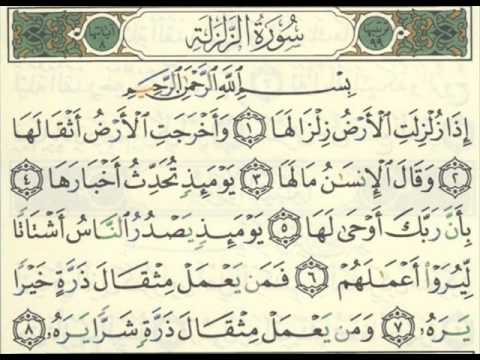 ترتيبها ٩٩ سُورَةُ الزَّلْزَلَةِ آياتها ٨
بِسْمِ اللَّهِ الرَّحْمَٰنِ الرَّحِيمِ
إِذَا زُلْزِلَتِ الْأَرْضُ زِلْزَالَهَا ١ وَأَخْرَجَتِ الْأَرْضُ أَثْقَالَهَا
٢ وَقَالَ الْإِنسَٰنُ مَا لَهَا ٣ يَوْمَئِذٍ تُحَدِّثُ أَخْبَارَهَا ٤
بِأَنَّ رَبَّكَ أَوْحَىٰ لَهَا ٥ يَوْمَئِذٍ يَصْدُرُ النَّاسُ أَشْتَاتًا
لِّيُرَوْا أَعْمَٰلَهُمْ ٦ فَمَن يَعْمَلْ مِثْقَالَ ذَرَّةٍ خَيْرًا
يَرَهُۥ ٧ وَمَن يَعْمَلْ مِثْقَالَ ذَرَّةٍ شَرًّا يَرَهُۥ ٨